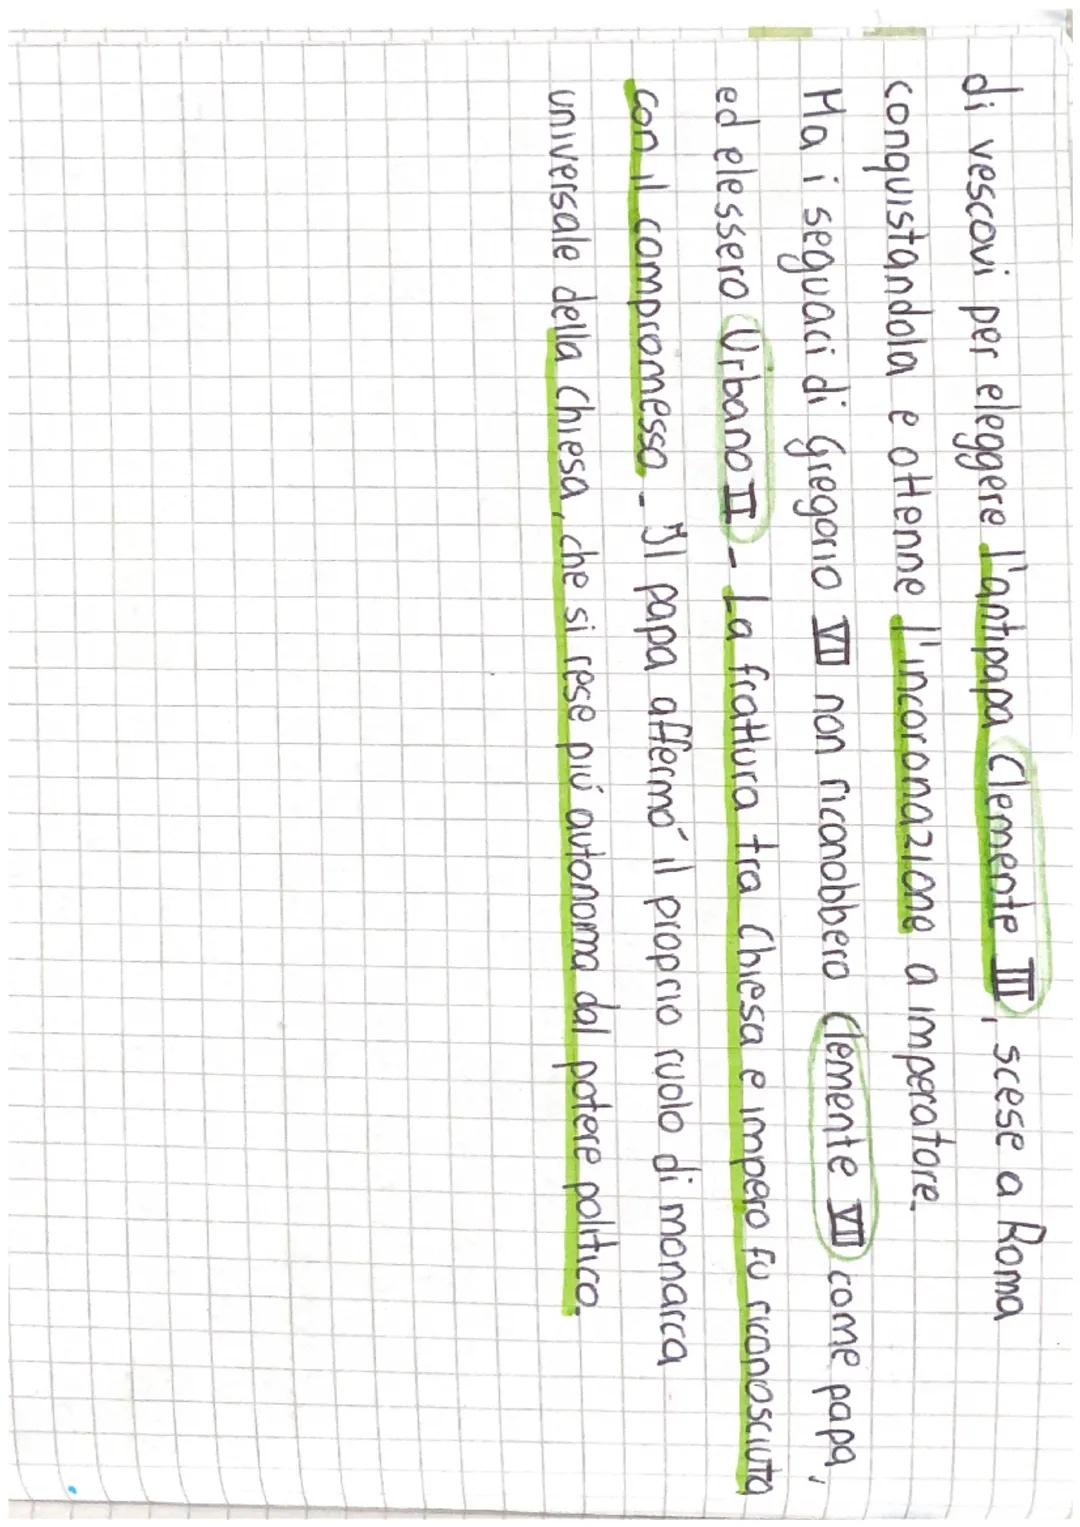 di vescovi per eleggere l'antipapa Clemente III, scese a Roma
conquistandola e ottenne l'incoronazione a imperatore.
Ma i seguaci di Gregorio VII non riconobbero Clemente VII come papa,
ed elessero Urbano II - La frattura tra Chiesa e impero fu riconosciuta
con il compromesso - Il papa affermó il proprio ruolo di monarca
universale della Chiesa, che si rese piú autonoma dal potere politico.